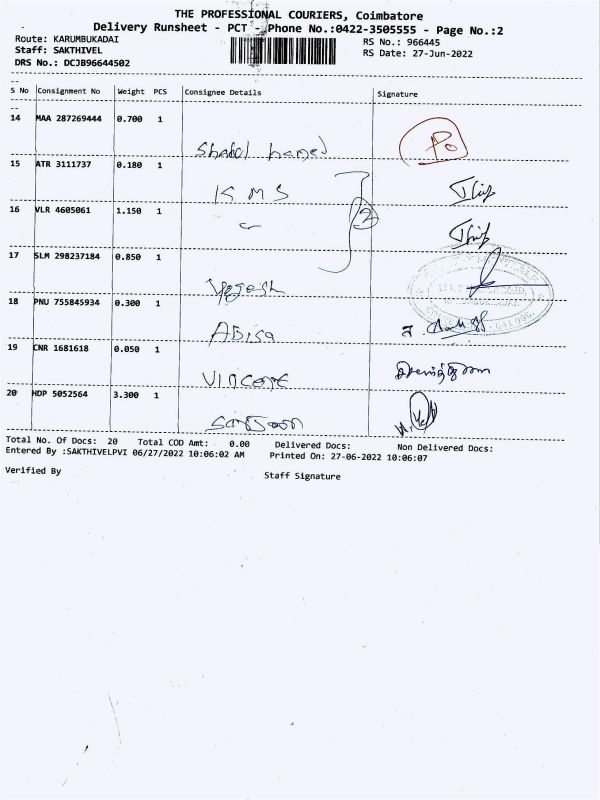 THE PROFESSIONAL COURIERS, Coimbatore
Delivery Runsheet - PCT - Phone No.:0422-3505555 - Page No.:2
Route: KARUMBUKADAI
RS No.: 966445
Staff: SAKTHIVEL
RS Date: 27-Jun-2022
DRS No.: DCJB96644502
S No Consignment No Weight PCS Consignee Details Signature
14 MAA 287269444 0.700 1
15 ATR 3111737 0.180 1
KMS
16 VLR 4605061 1.150 1
2
17 SLM 298237184 0.850 1
18 PNU 755845934 0.300 1
19 CNR 1681618 0.050 1
20 HDP 5052564 3.300 1
Total No. Of Docs: 20 Total COD Amt: 0.00 Delivered Docs: Non Delivered Docs:
Entered By :SAKTHIVELPVI 06/27/2022 10:06:02 AM Printed On: 27-06-2022 10:06:07
Verified By Staff Signature